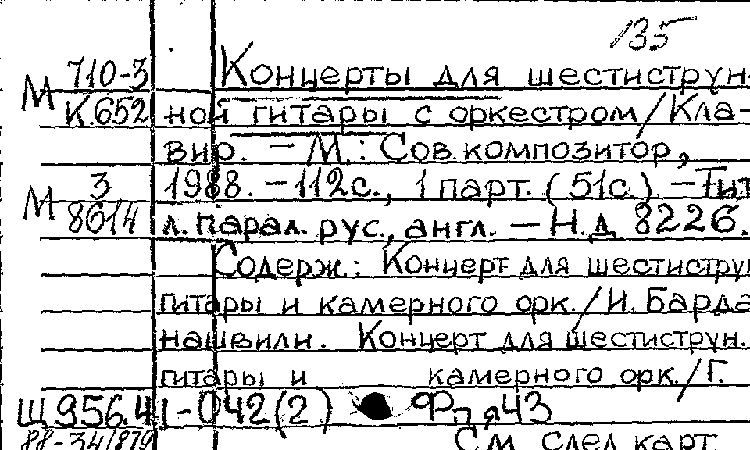 135
М 710-3 Концерты для шестиструн-
К.652 ной гитары с оркестром/Кла-
вир. – М.: Сов. композитор,
М 3 1988. – 112с., 1 парт. (51с.) – Тит.
8614 л. парал. рус., англ. – Н.д. 8226.
Содерж.: Концерт для шестиструн
гитары и камерного орк./И. Барда
нашвили. Концерт для шестиструн.
гитары и камерного орк./Г.
Щ956.41-042(2)
88-34/879 См. след. карт.